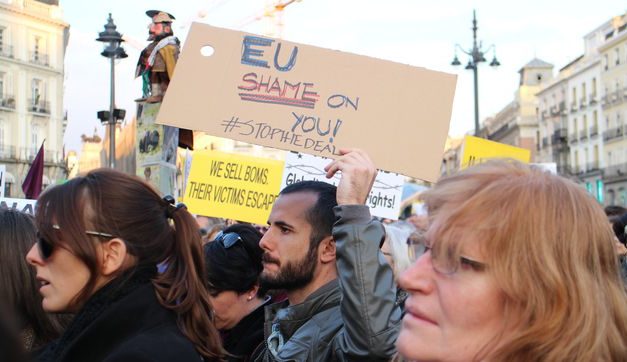 EU
SHAME ON
YOU!
#STOPTHEDEAL
WE SELL BOMS.
THEIR VICTIMS
ESCAPE